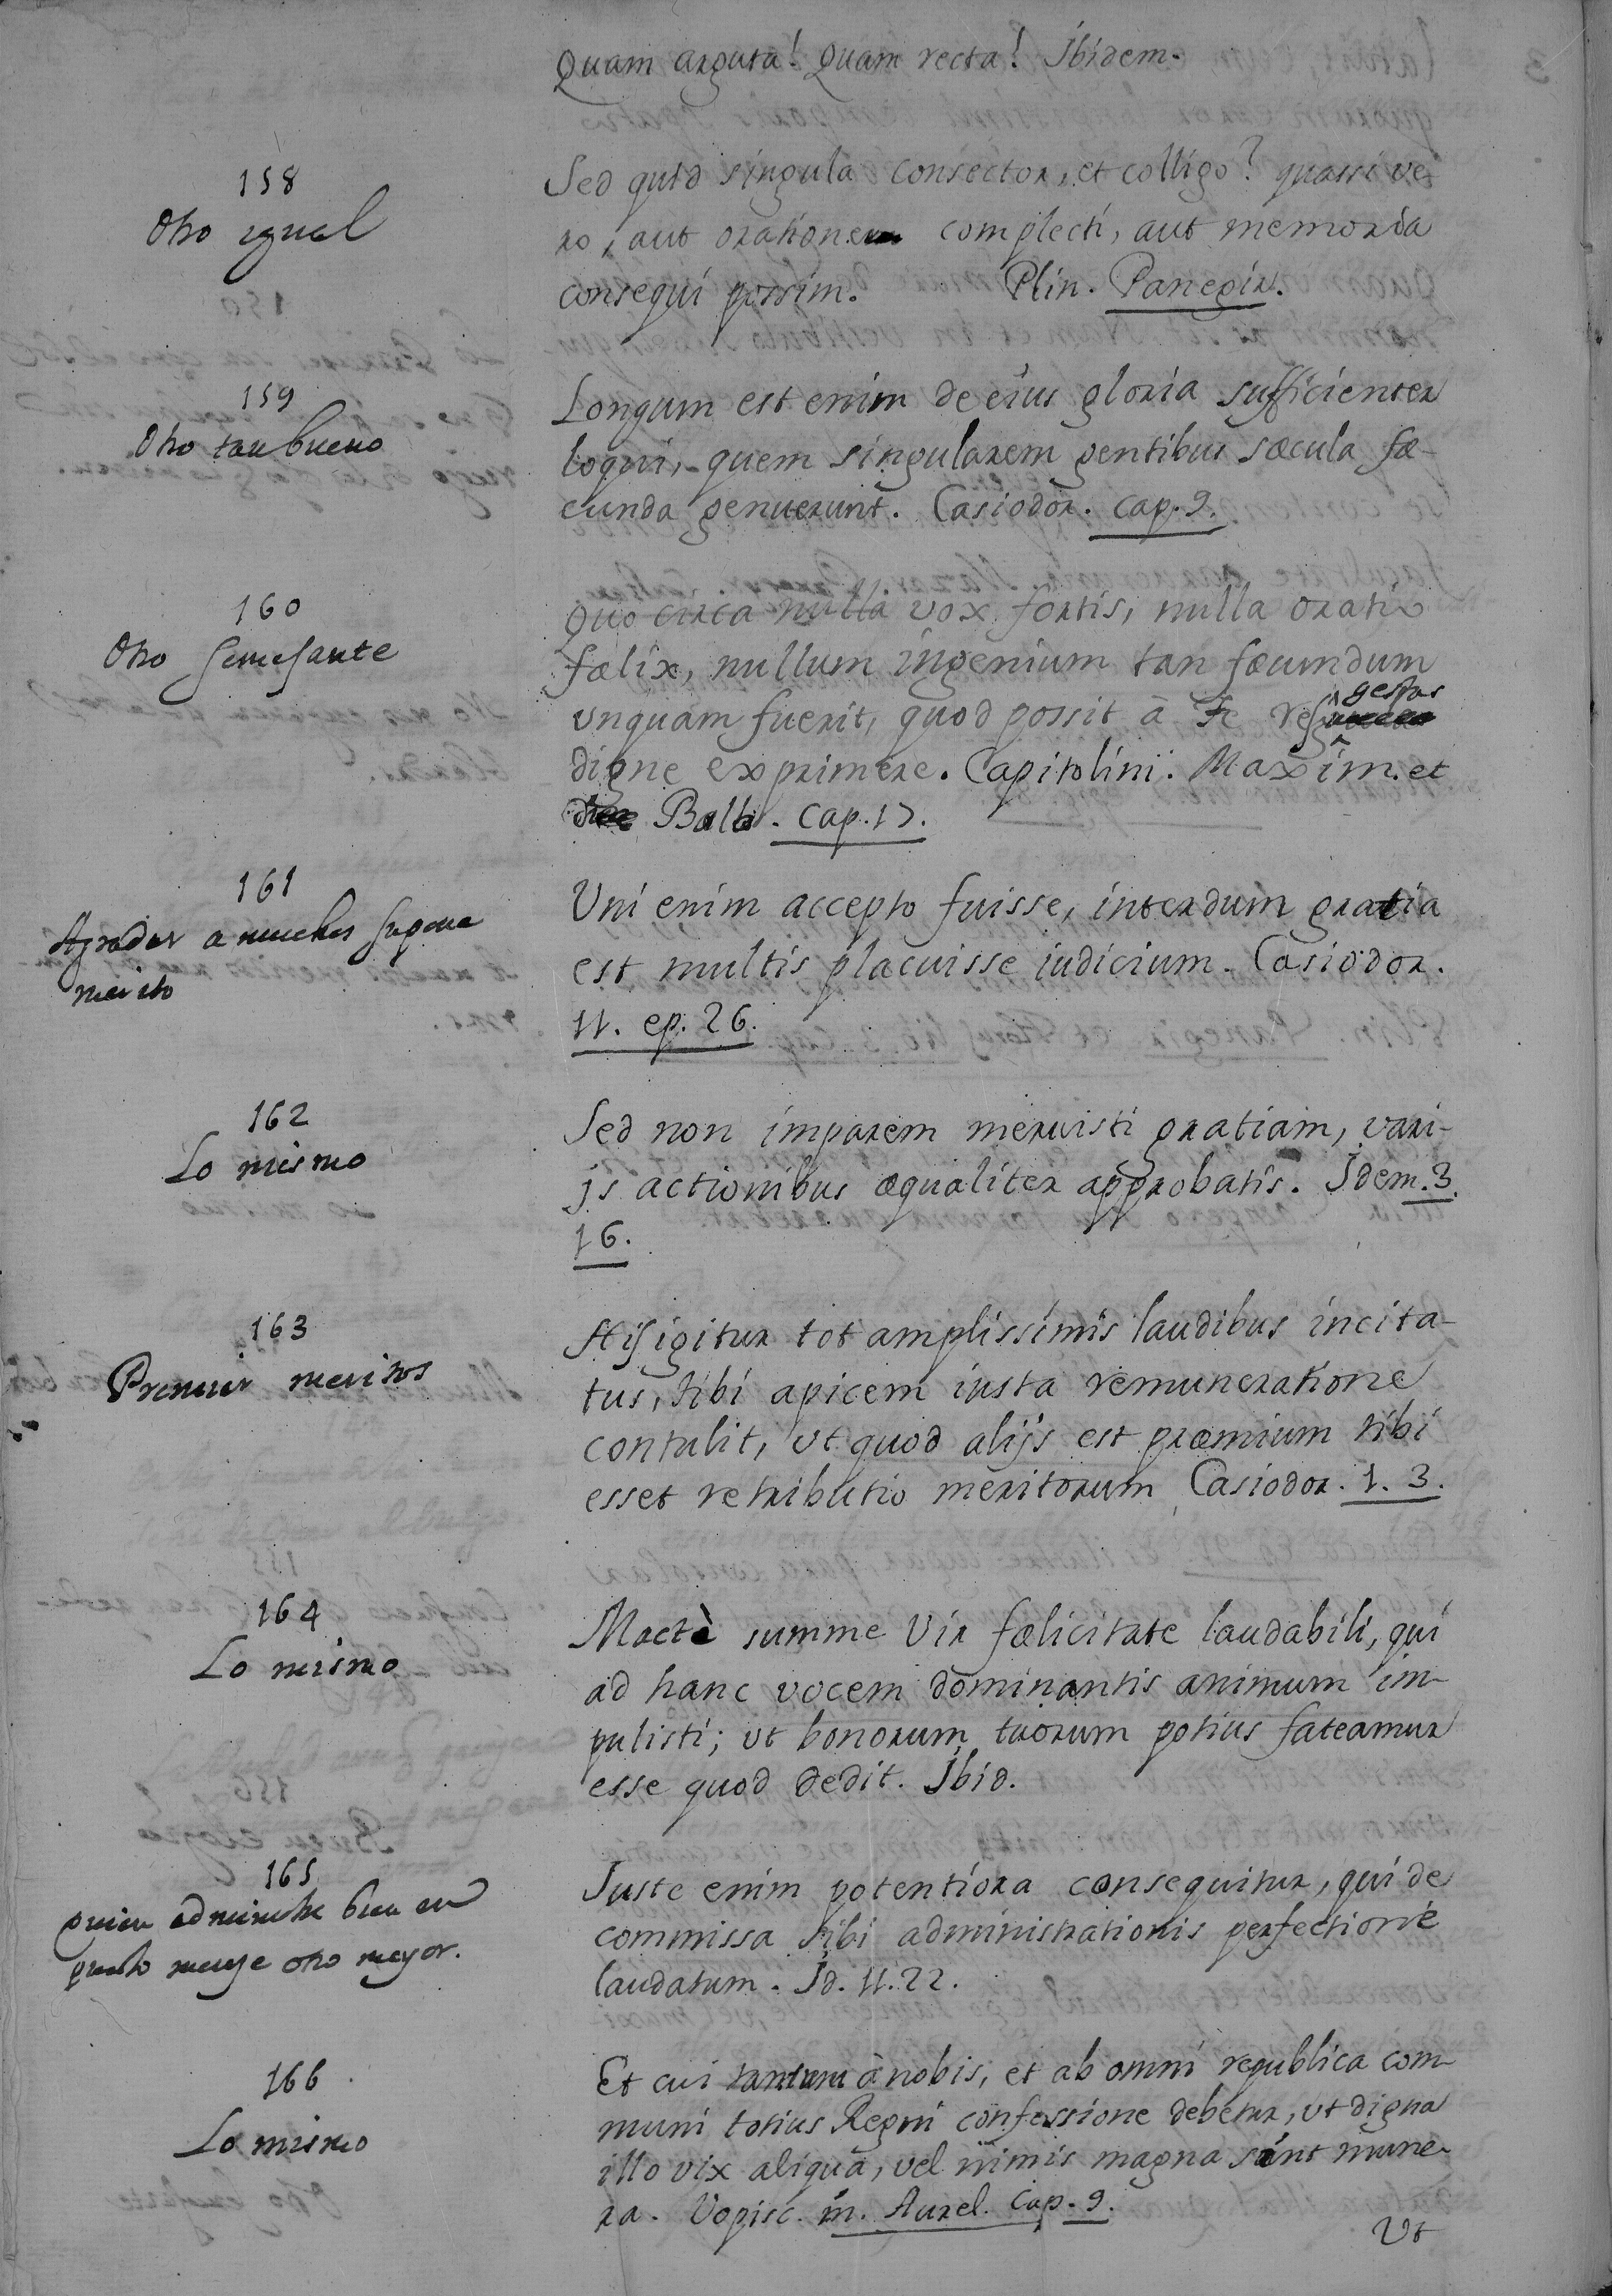 Quam arguta! Quam recta! Ibidem.
158
Otro igual
Sed quid singula consector, et colligo? quassi ve-
ro, aut orationem complecti, aut memoria
consequi possim. Plin. Panegir.
159
Otro tan bueno
Longum est enim de eius gloria sufficienter
loqui, quem singularem gentibus sæcula fæ-
cunda genuerunt. Casiodor. cap. 9.
160
Otro semejante
Quo circa nulla vox fortis, nulla oratio
fælix, nullum ingenium tan fæcumdum
unquam fuerit, quod possit à te res gestas
digne exprimere. Capitolini. Maxim. et
Balb. Cap. 17.
161
Agradar a muchos supone
merito
Uni enim accepto fuisse, interdum gratia
est multis placuisse iudicium. Casiodor.
11. ep. 26.
162
Lo mismo
Sed non imparem meruisti gratiam, vari-
js actionibus æqualiter approbatis. Idem. 3.
16.
163
Premiar meritos
His igitur tot amplissimis laudibus incita-
tus, tibi apicem iusta remuneratione
contulit, ut quod alijs est præmium tibi
esset retributio meritorum Casiodor. 1. 3.
164
Lo mismo
Mactè summe Vir fælicitate laudabili, qui
ad hanc vocem dominantis animum im-
pulisti; ut bonorum tuorum potius fateamur
esse quod dedit. Ibid.
165
quien administra bien un
puesto merece otro mayor.
Juste enim potentiora consequitur, qui de
commissa sibi administrationis perfectione
laudatum. Id. 11. 22.
166
Lo mismo
Et cui tantum à nobis, et ab omni republica com-
muni totius Regni confessione debetur, ut digna
illo vix aliqua, vel nimis magna sint mune-
ra. Vopisc. in. Aurel. Cap. 9.
Ut